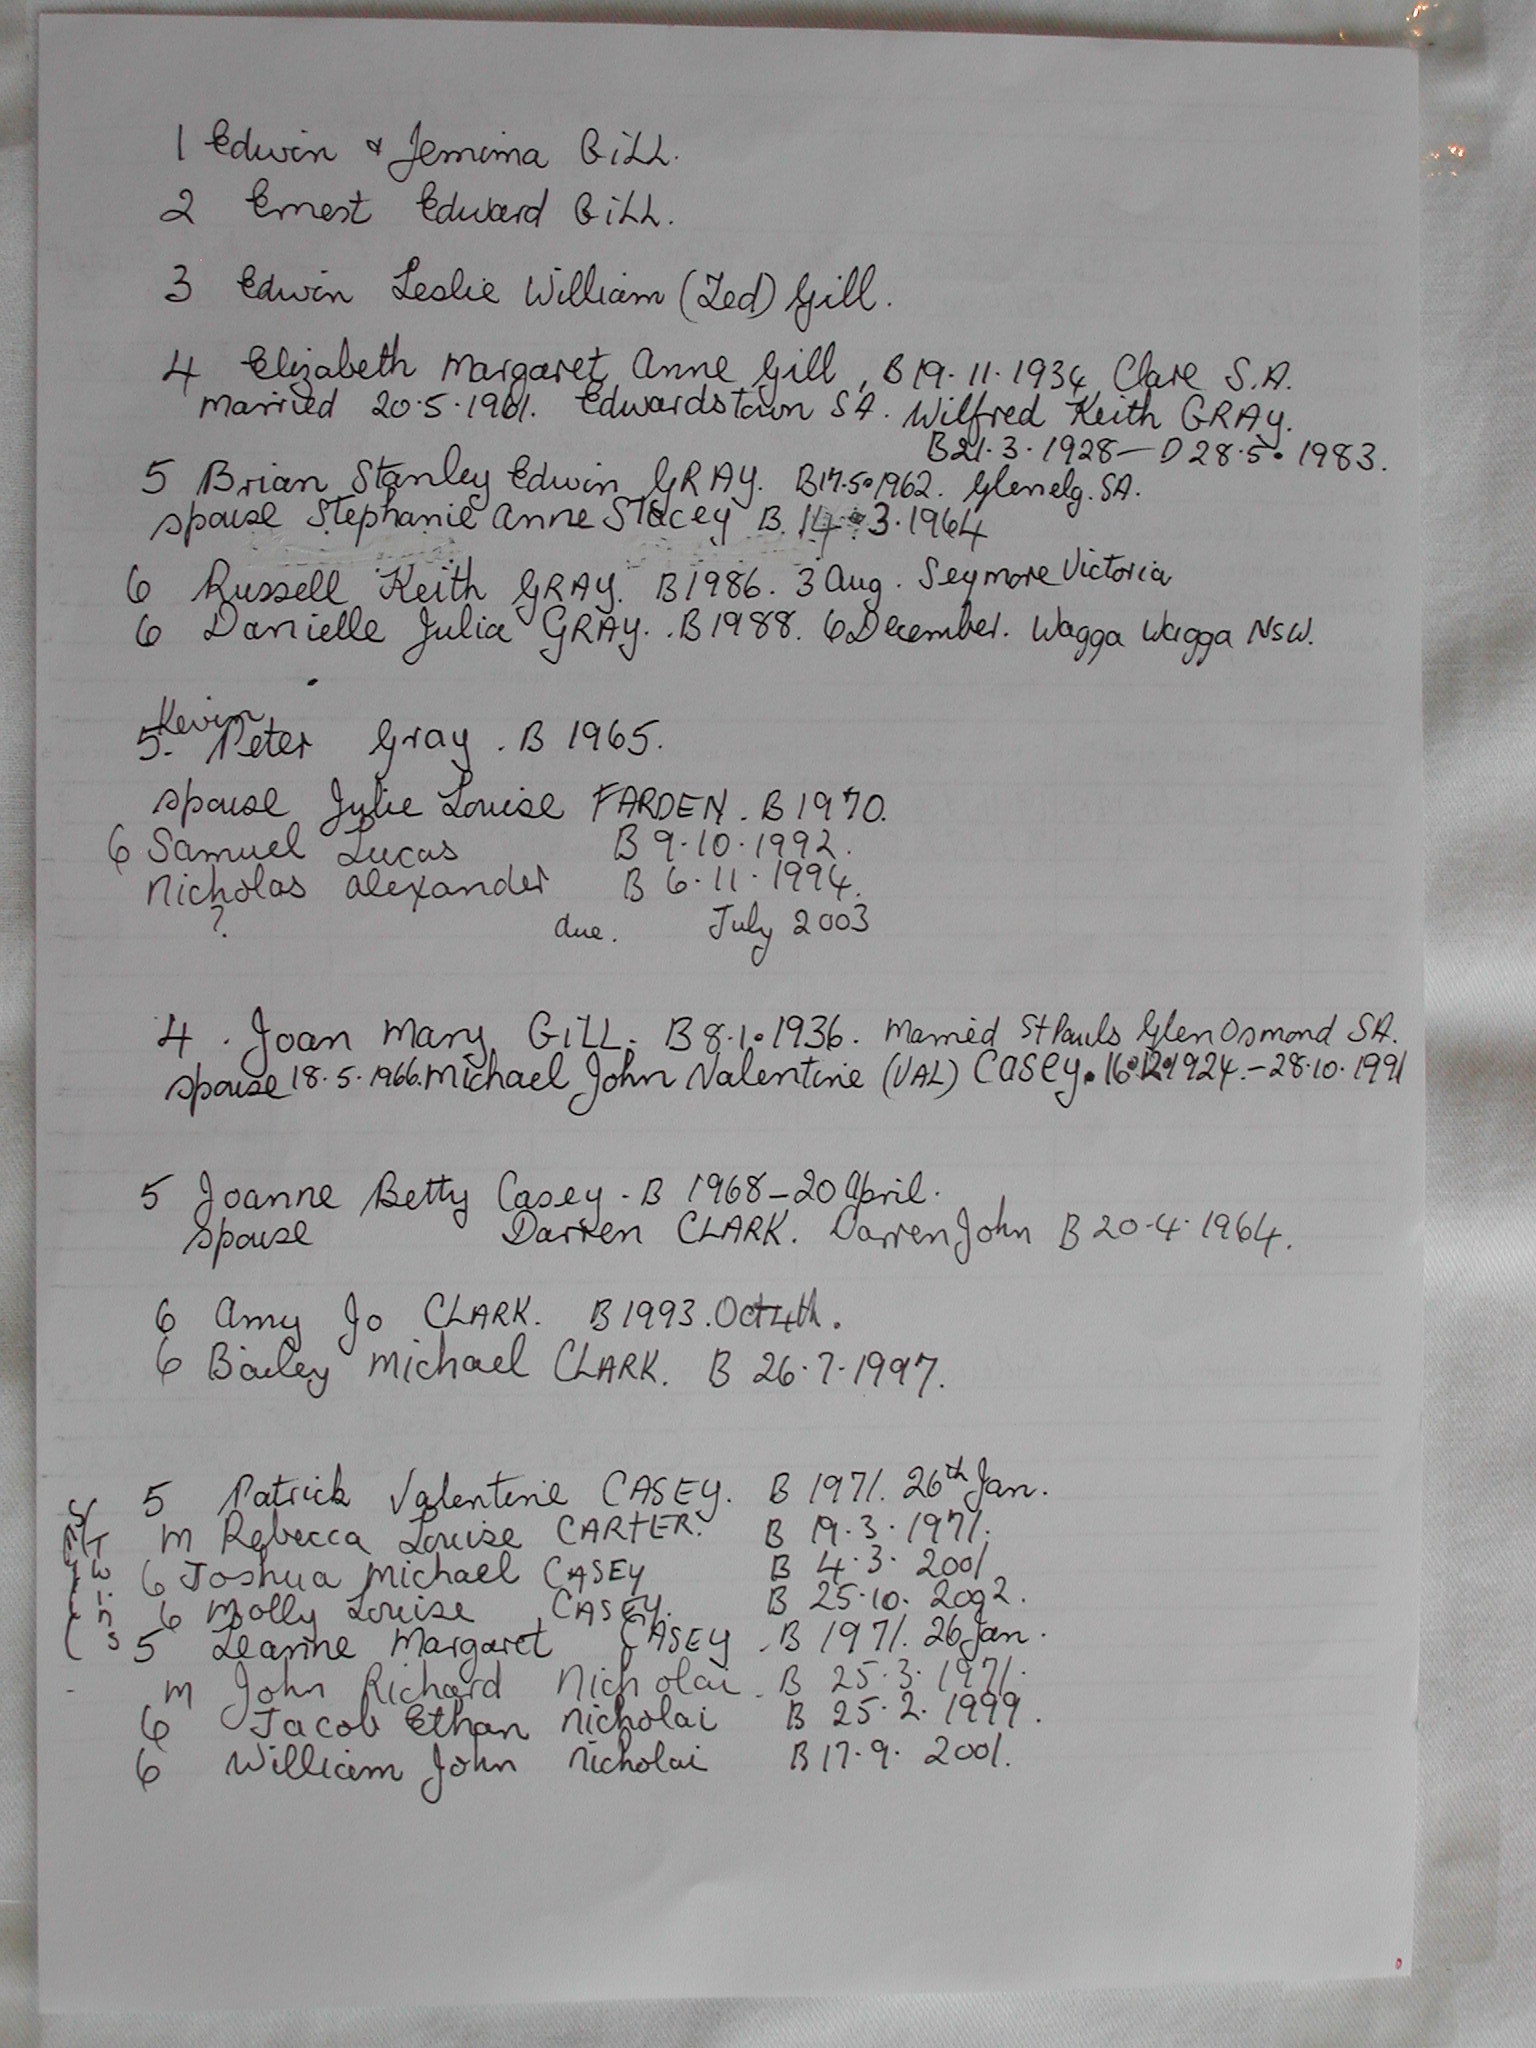 1 Edwin & Jemima GiLL.
2 Ernest Edward GiLL.
3 Edwin Leslie William (Ted) Gill.
4 Elizabeth Margaret Anne Gill, B 19.11.1934 Clare S.A.
married 20.5.1961. Edwardstown SA. Wilfred Keith GRAY.
B 21.3.1928 — D 28.5.1983.
5 Brian Stanley Edwin GRAY. B 17.5.1962. Glenelg. SA.
spouse Stephanie Anne Stacey B. 14.3.1964
6 Russell Keith GRAY. B 1986. 3 Aug. Seymore Victoria
6 Danielle Julia GRAY. B 1988. 6 December. Wagga Wagga NSW.
Kevin
5. Peter Gray. B 1965.
spouse Julie Louise FARDEN. B 1970.
6 Samuel Lucas B 9.10.1992.
Nicholas Alexander B 6.11.1994.
? due. July 2003
4. Joan Mary GiLL. B 8.1.1936. Married St Pauls Glen Osmond SA.
spouse 18.5.1966. Michael John Valentine (VAL) CASEY. 16.12.1924. - 28.10.1991
5 Joanne Betty Casey - B 1968 - 20 April.
spouse Darren CLARK. Darren John B 20.4.1964.
6 Amy Jo CLARK. B 1993. Oct 4th.
6 Bailey Michael CLARK. B 26.7.1997.
5 Patrick Valentine CASEY. B 1971. 26th Jan.
M Rebecca Louise CARTER. B 19.3.1971.
Twins
6 Joshua Michael CASEY B 4.3.2001
6 Molly Louise CASEY. B 25.10.2002.
5 Leanne Margaret CASEY. B 1971. 26 Jan.
M John Richard Nicholai. B 25.3.1971.
6 Jacob Ethan Nicholai B 25.2.1999.
6 William John Nicholai B 17.9.2001.